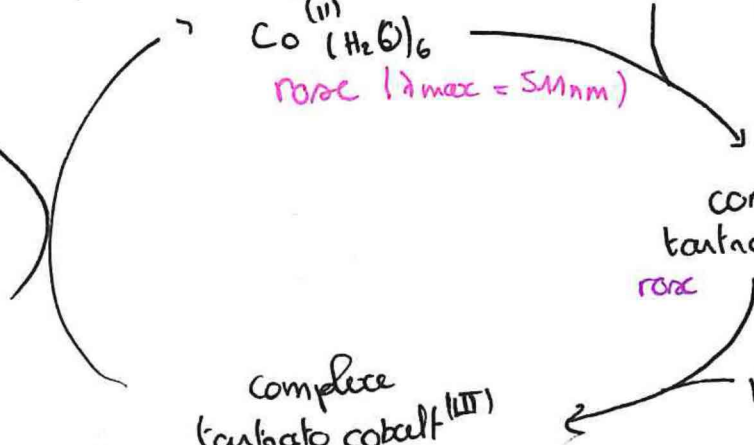 Co(II)(H₂O)₆
rose (λmax = 511nm)
rose
complexe
tartrato cobalt(III)